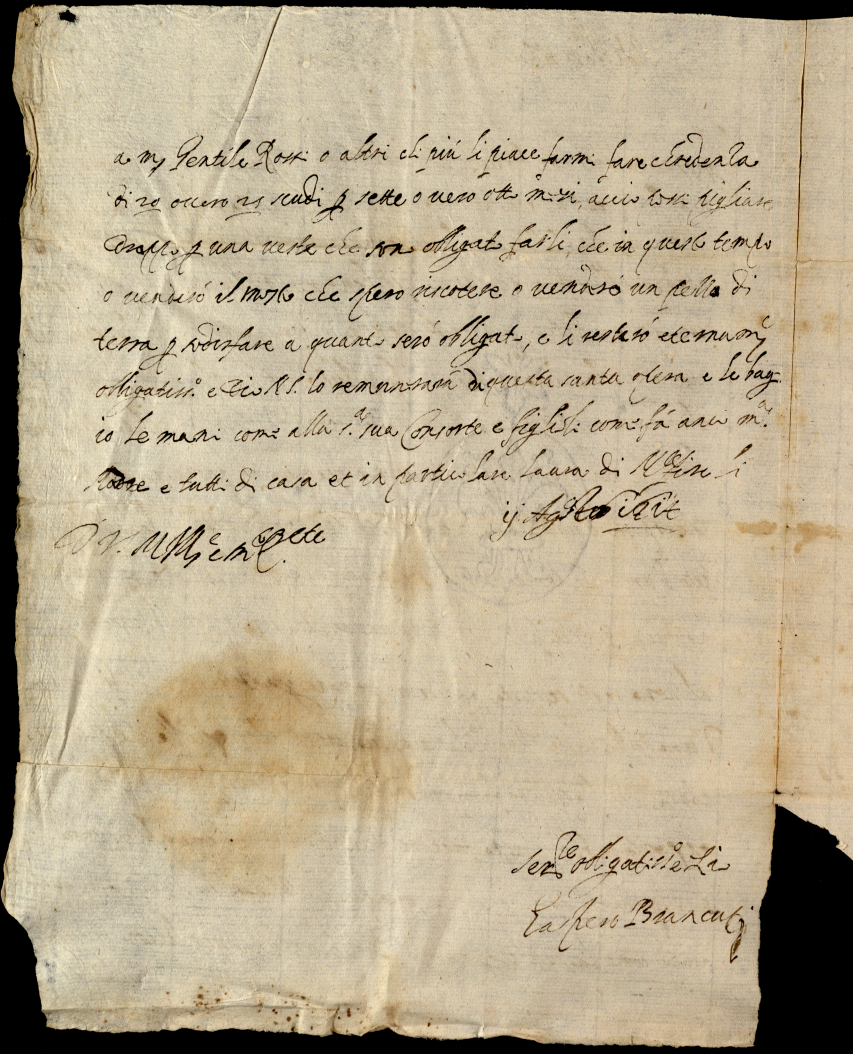 a m. Gentile Rossi o altri ch più li piace farmi fare credenza
di 20 overo 25 scudi p sette o vero otto mesi, acciò possi pigliare
drappo p una veste che son obligato farli, che in questo tempo
o venderò il mosto che spero riscotere o venderò un pezzo di
terra p sodisfare a quanto serò obligato, e li resterò eternam.te
obligatiss.o e Dio N.S. lo remunerarà di questa santa opera e le bag
io le mani come alla s.ra sua Consorte e figlioli come fà anco m.a
Madre e tutti di casa et in particolare Laura di li
Di V.S. M.
Ser.re obligatiss.o e
Gaspero Brancuti